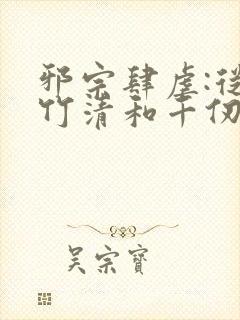 邪宗肆虐:從
竹清和千仞
吳宗寶